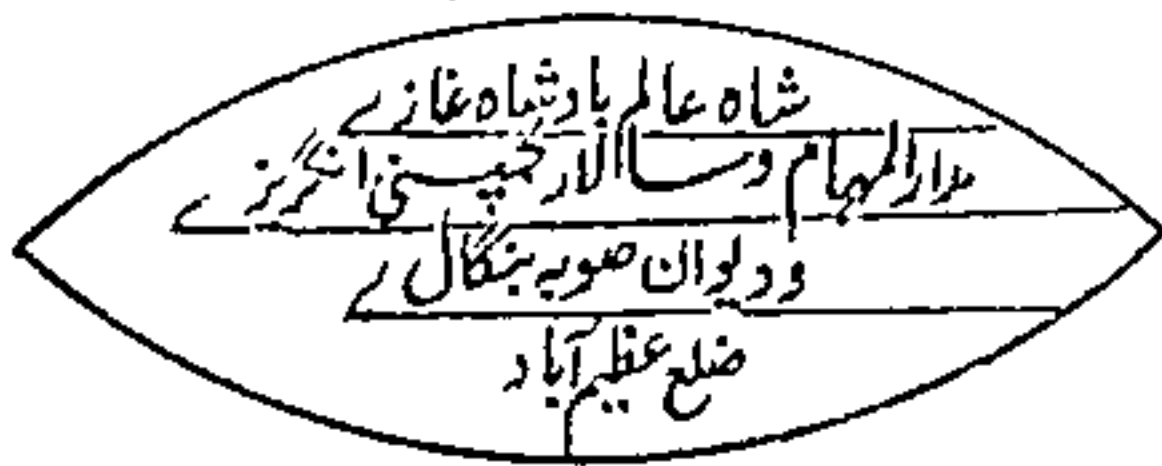 شاه عالم بادشاه غازے
مدار المهام و سالار کمپنی انگریزے
و دیوان صوبه بنگال ے
ضلع عظیم آباد